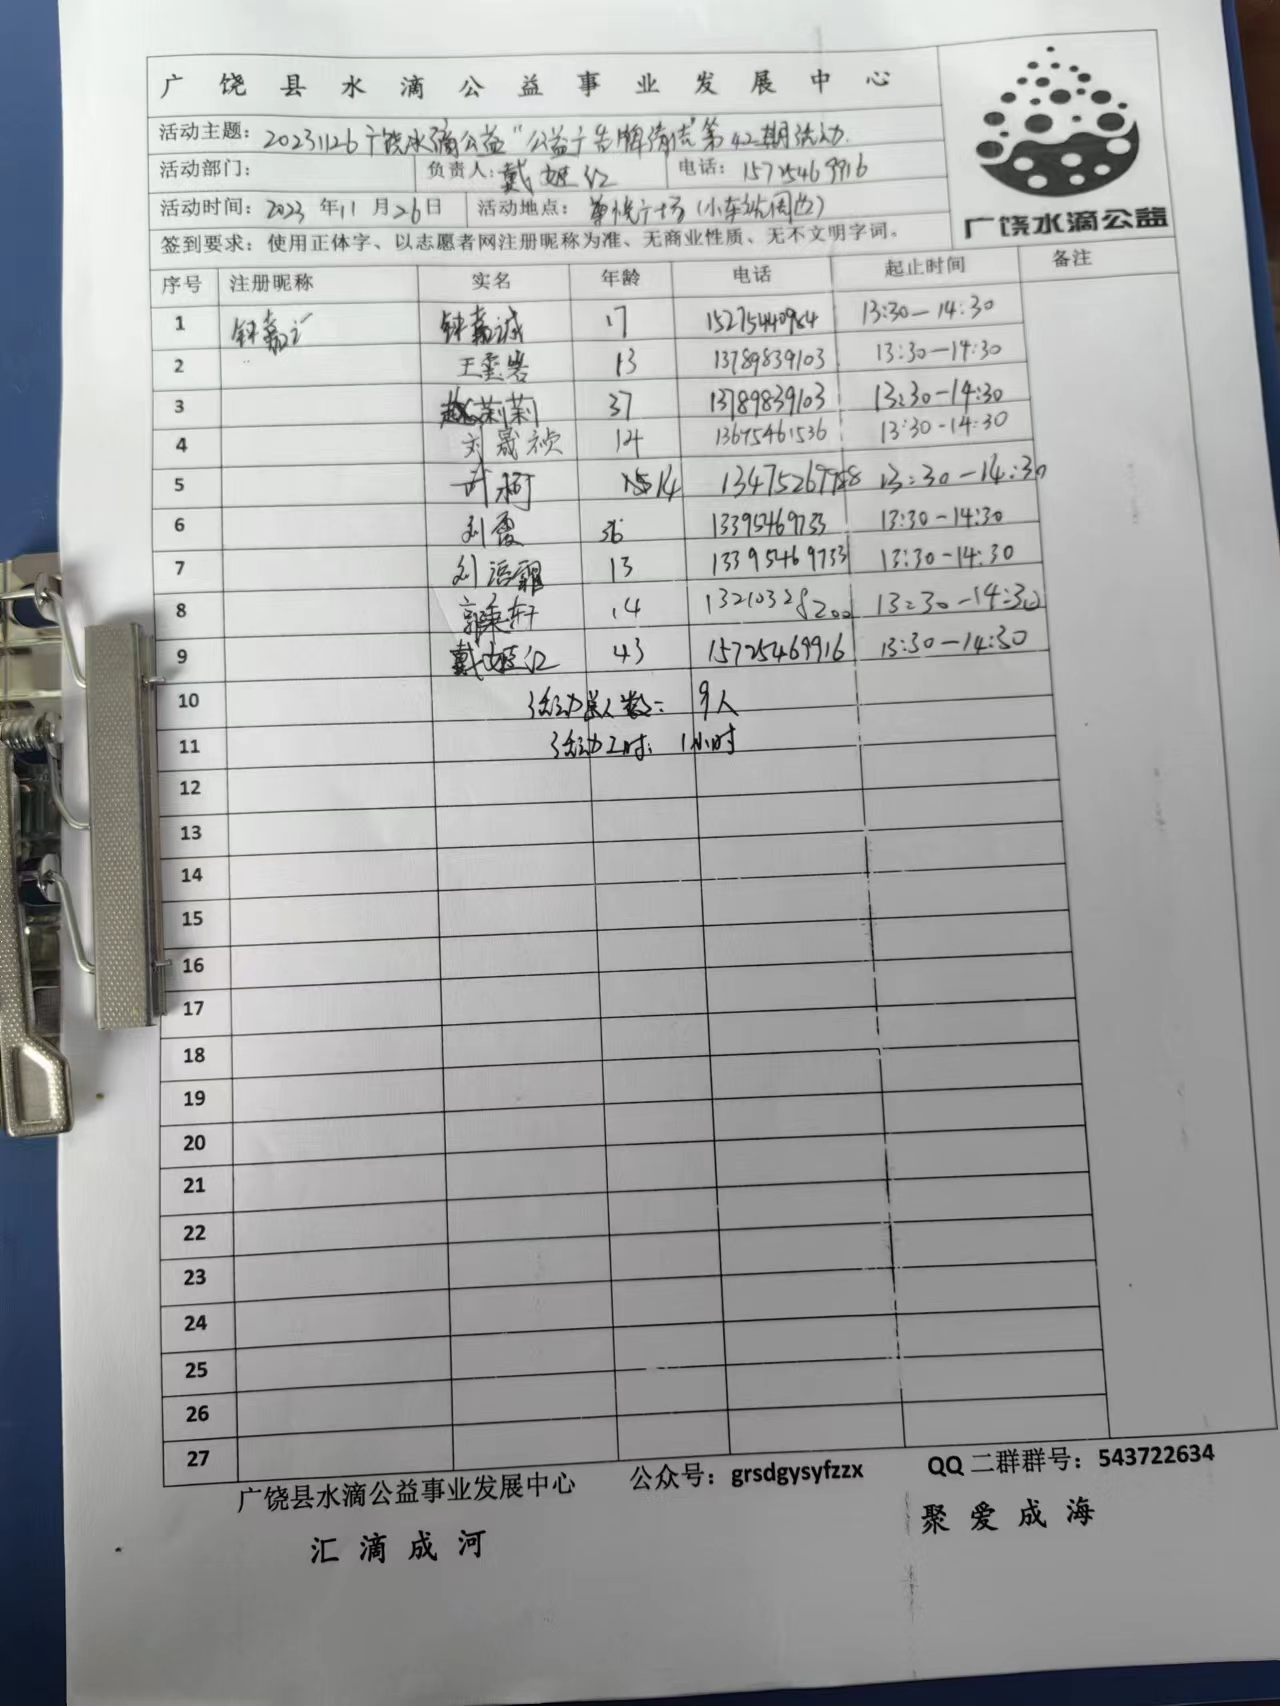 广饶县水滴公益事业发展中心
活动主题：20231126广饶水滴公益“公益广告牌清洁”第42期活动.
活动部门： 负责人：戴姬红 电话：15725469916
活动时间：2023年11月26日 活动地点：广场（小车站周边）
签到要求：使用正体字、以志愿者网注册昵称为准、无商业性质、无不文明字词。
广饶水滴公益
序号 注册昵称 实名 年龄 电话 起止时间 备注
1 钟嘉 钟嘉诚 17 15275440984 13:30—14:30
2 王 13 13789839103 13:30—14:30
3 赵莉莉 37 13789839103 13:30—14:30
4 刘晟祯 14 13675461536 13:30-14:30
5 14 13:30—14:30
6 刘霞 36 13395469733 13:30-14:30
7 刘语霏 13 13395469733 13:30-14:30
8 郭秉轩 14 13210328200 13:30-14:30
9 戴姬红 43 15725469916 13:30—14:30
10 活动总人数： 9人
11 活动工时：1小时
12
13
14
15
16
17
18
19
20
21
22
23
24
25
26
27
广饶县水滴公益事业发展中心 公众号：grsdgysyfzzx QQ二群群号：543722634
汇滴成河 聚爱成海